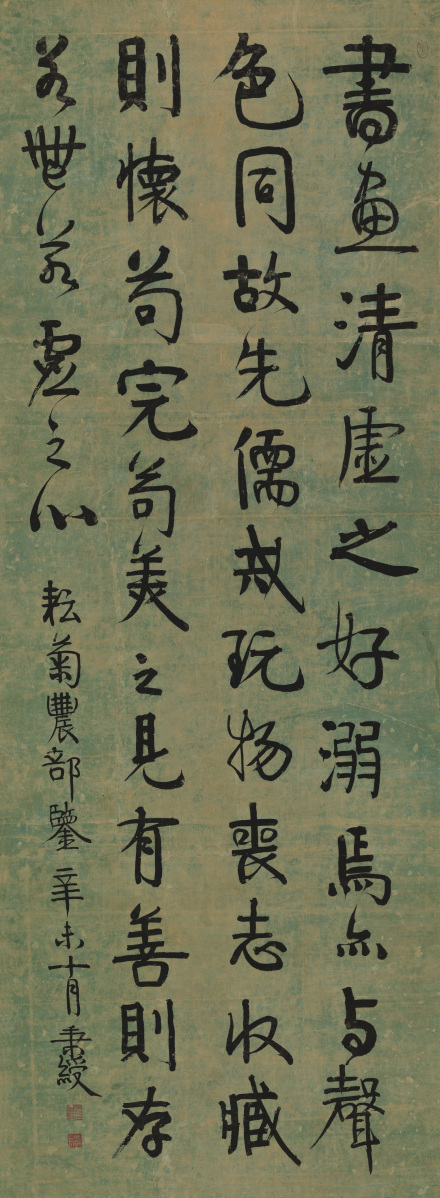 書畫清虛之好溺焉亦与聲
色同故先儒戒玩物喪志收藏
則懷苟完苟美之見有善則存
若無若虛之心
耘菊農部鑒辛未十月秉綬